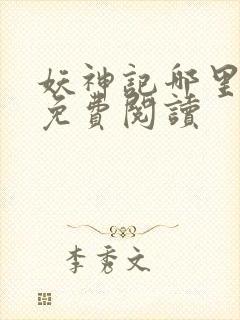 妖神記哪里
免費閱讀
李秀文